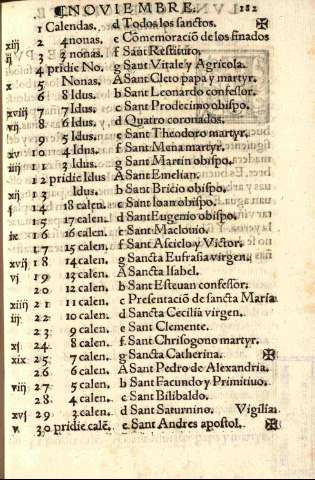 NOVIEMBRE. 182
1 Calendas. d Todos los sanctos. ✠
xiij 2 4 nonas. e Comemoraciõ de los finados
ij 3 3 nonas. f Sant Restituto,
4 pridie No. g Sant Vitale y Agricola.
x 5 Nonas. A Sant Cleto papa y martyr.
6 8 Idus. b Sant Leonardo confessor.
xviij 7 7 Idus. c Sant Prodecimo obispo.
vij 8 6 Idus. d Quatro coronados.
9 5 Idus. e Sant Theodoro martyr.
xv 10 4 Idus. f Sant Mena martyr.
iiij 11 3 Idus. g Sant Martin obispo.
12 pridie Idus A Sant Emelian.
xij 13 Idus. b Sant Bricio obispo.
j 14 18 calen. c Sant Ioan obispo.
15 17 calen. d Sant Eugenio obispo.
ix 16 16 calen. e Sant Maclouio.
17 15 calen. f Sant Asciclo y Victor.
xvij 18 14 calen. g Sancta Eufrasia virgen.
vj 19 13 calen. A Sancta Isabel.
20 12 calen. b Sant Esteuan confessor.
xiiij 21 11 calen. c Presentaciõ de sancta Maria
iij 22 10 calen. d Sancta Cecilia virgen.
23 9 calen. e Sant Clemente.
xj 24 8 calen. f Sant Chrisogono martyr.
xix 25 7 calen. g Sancta Catherina. ✠
26 6 calen. A Sant Pedro de Alexandria.
viij 27 5 calen. b Sant Facundo y Primitiuo.
28 4 calen. c Sant Bilibaldo.
xvj 29 3 calen. d Sant Saturnino. Vigilia
v 30 pridie calẽ. e Sant Andres apostol. ✠